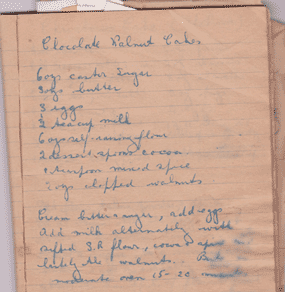 Chocolate Walnut Cakes
6ozs castor sugar
3ozs butter
3 eggs
½ teacup milk
6ozs self-raising flour
2 dessertspoons cocoa
1 teaspoon mixed spice
2ozs chopped walnuts
Cream butter & sugar, add eggs
Add milk alternately with
sifted S.R flour, cocoa
lastly the walnuts.
moderate oven 15-20